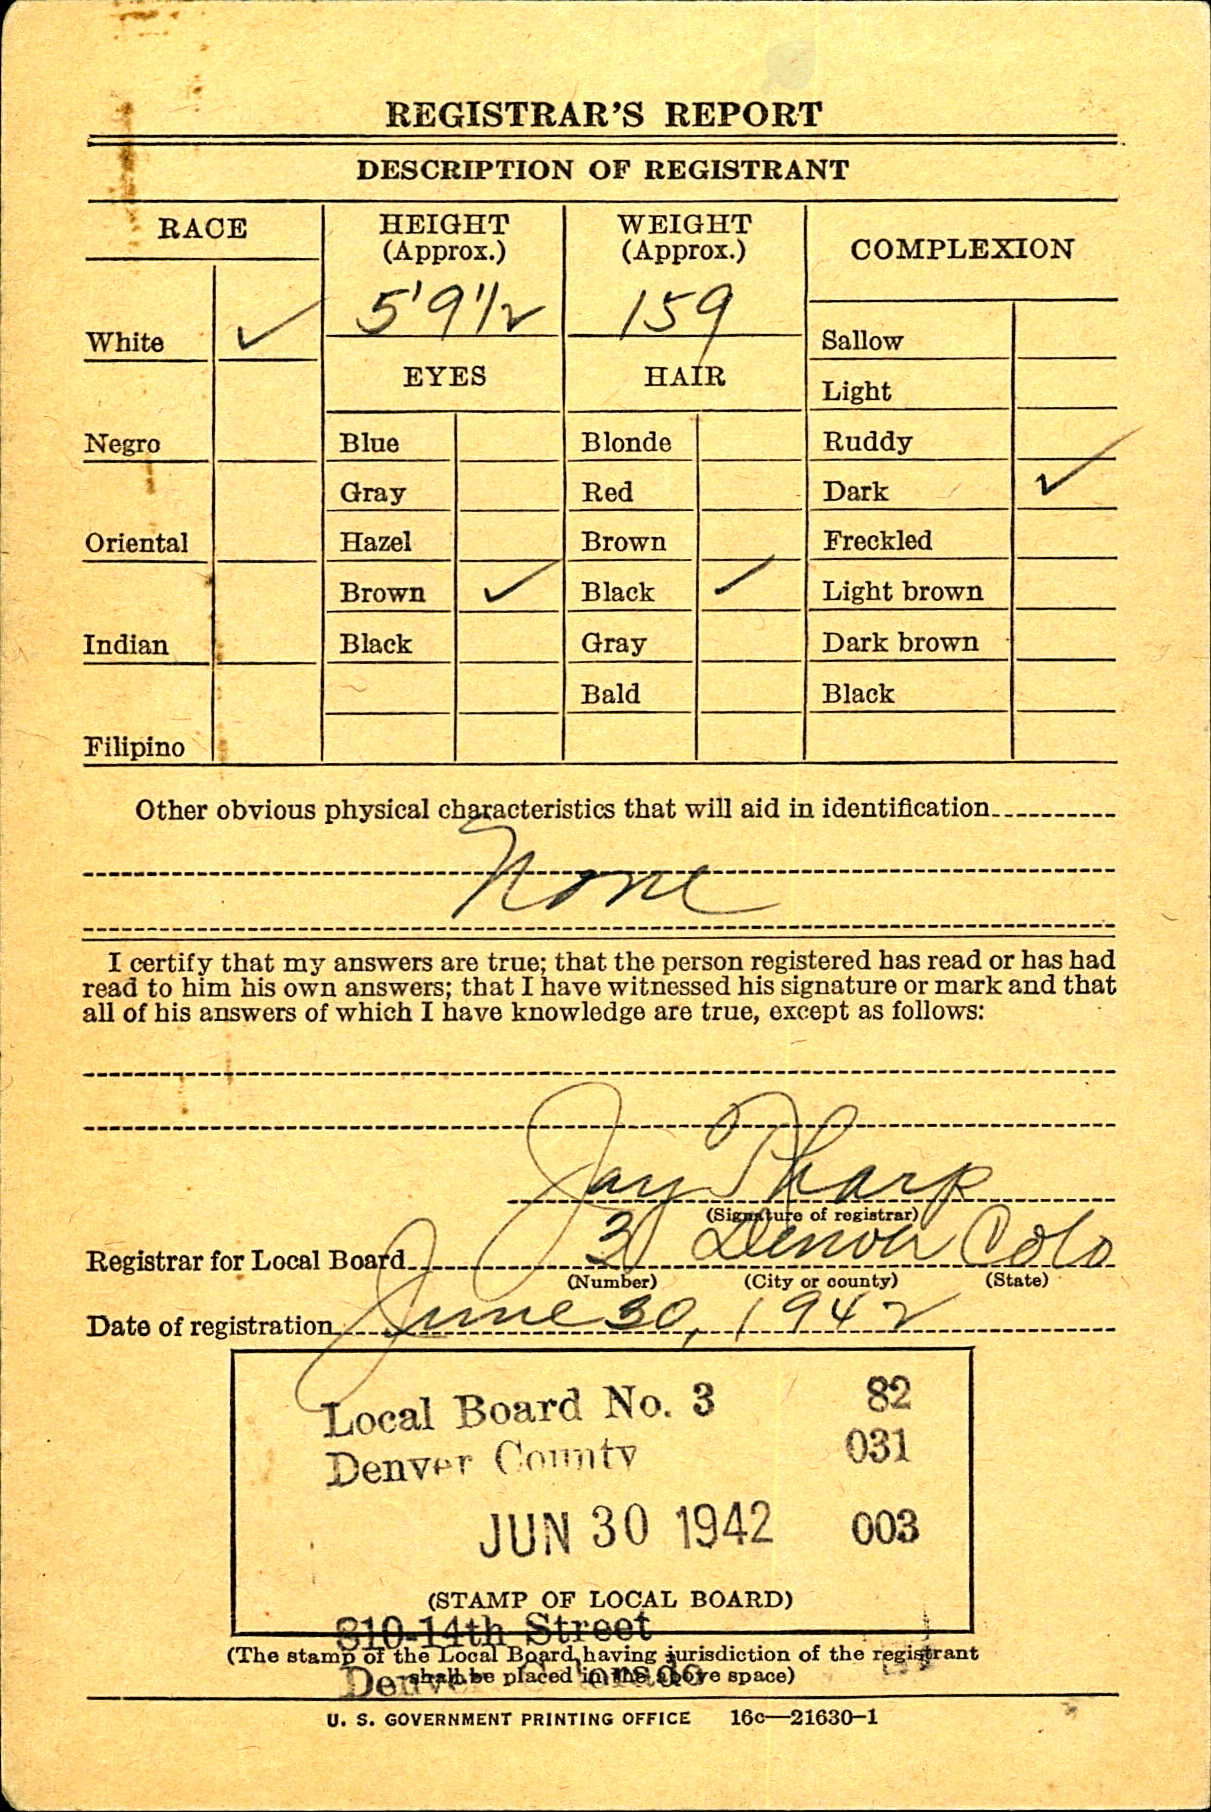 REGISTRAR'S REPORT
DESCRIPTION OF REGISTRANT
RACE
HEIGHT
(Approx.)
WEIGHT
(Approx.)
COMPLEXION
5'9 1/2
159
White ✓
Sallow
EYES
HAIR
Light
Negro
Blue
Blonde
Ruddy
Gray
Red
Dark ✓
Oriental
Hazel
Brown
Freckled
Brown ✓
Black ✓
Light brown
Indian
Black
Gray
Dark brown
Bald
Black
Filipino
Other obvious physical characteristics that will aid in identification
None
I certify that my answers are true; that the person registered has read or has had
read to him his own answers; that I have witnessed his signature or mark and that
all of his answers of which I have knowledge are true, except as follows:
Jay Tharp
(Signature of registrar)
Registrar for Local Board 3 Denver Colo
(Number) (City or county) (State)
Date of registration June 30, 1942
Local Board No. 3 82
Denver County 031
JUN 30 1942 003
(STAMP OF LOCAL BOARD)
810-14th Street
(The stamp of the Local Board having jurisdiction of the registrant
shall be placed in the above space)
Denver Colorado
U. S. GOVERNMENT PRINTING OFFICE 16c—21630-1